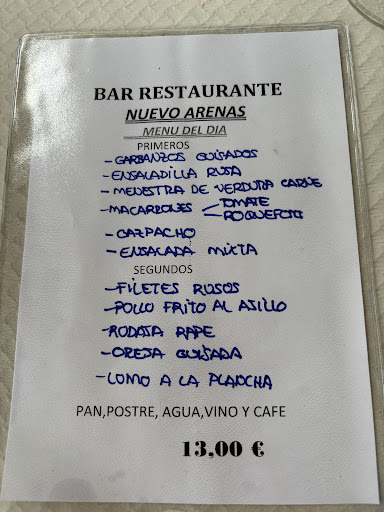 BAR RESTAURANTE
NUEVO ARENAS
MENU DEL DIA
PRIMEROS
- GARBANZOS GUISADOS
- ENSALADILLA RUSA
- MENESTRA DE VERDURA CARNE
- MACARRONES < TOMATE
ROQUEFORT
- GAZPACHO
- ENSALADA MIXTA
SEGUNDOS
- FILETES RUSOS
- POLLO FRITO AL AJILLO
- RODAJA RAPE
- OREJA GUISADA
- LOMO A LA PLANCHA
PAN,POSTRE, AGUA,VINO Y CAFE
13,00 €